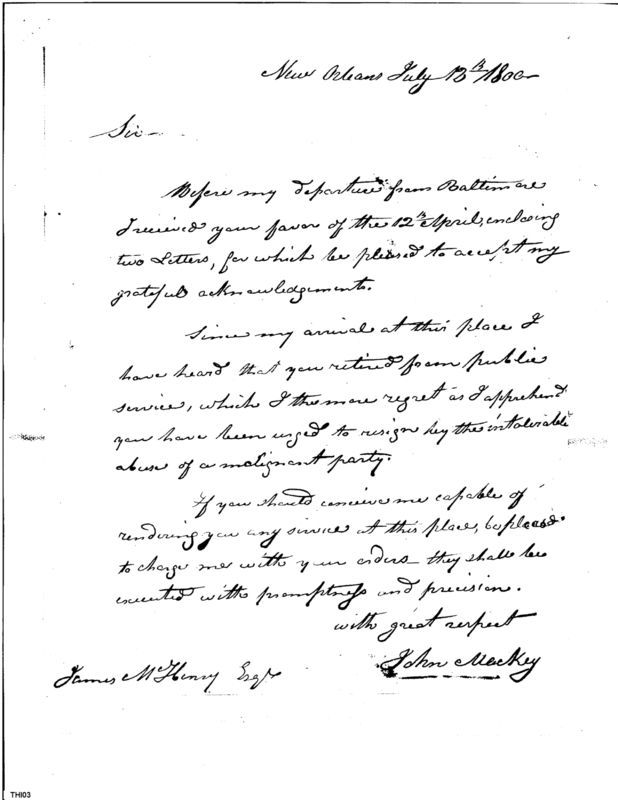 New Orleans July 13th 1800—
Sir—
Before my departure from Baltimore
I received your favor of the 12th April, enclosing
two Letters, for which be pleased to accept my
grateful acknowledgements.
Since my arrival at this place I
have heard that you retired from public
service, which I the more regret as I apprehend
you have been urged to resign by the intolerable
abuse of a malignant party.
If you should conceive me capable of
rendering you any service at this place, be pleased
to charge me with your orders— they shall be
executed with promptness and precision.
with great respect
John Mackey
James McHenry Esqr
THI03